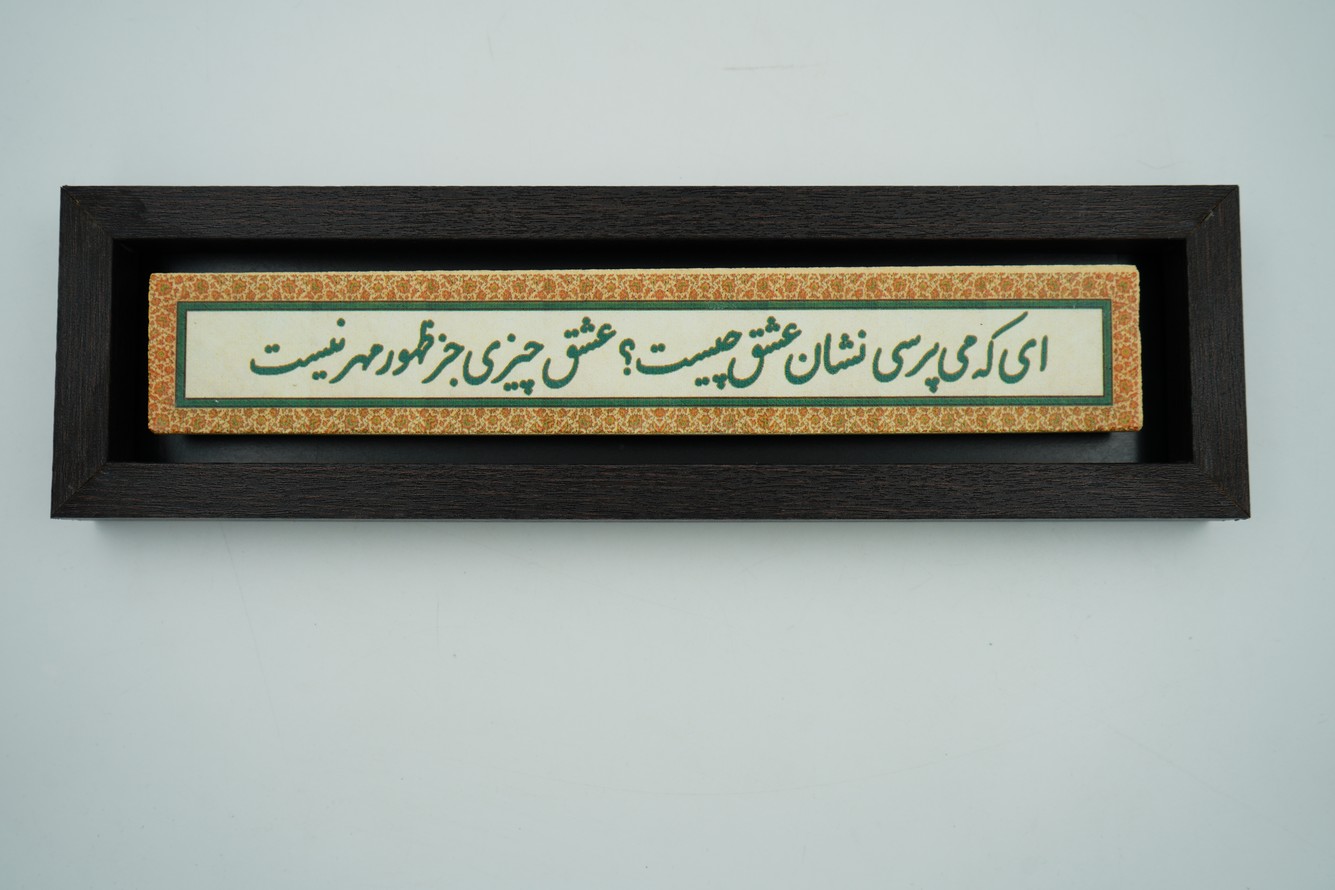 ای که می پرسی نشان عشق چیست؟ عشق چیزی جز ظهور مهر نیست